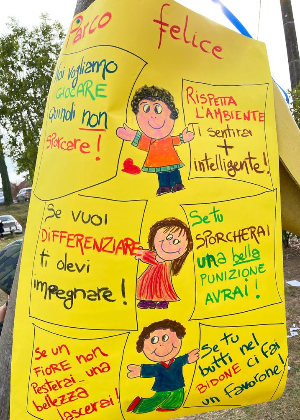 Parco felice
Noi vogliamo
GIOCARE
Quindi non
sporcare!
RISPETTA
L'AMBIENTE
Ti sentirai
+
intelligente!
Se vuoi
DIFFERENZIARE
ti devi
impegnare!
Se tu
SPORCHERAI
una bella
PUNIZIONE
AVRAI!
Se un
FIORE non
Pesterai una
bellezza
lascerai!
Se tu
butti nel
BIDONE ci fai
un favorone!